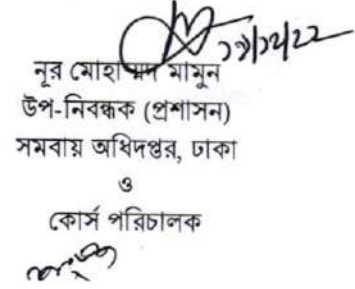 ২১/১২/২২
নূর মোহাম্মদ মামুন
উপ-নিবন্ধক (প্রশাসন)
সমবায় অধিদপ্তর, ঢাকা
ও
কোর্স পরিচালক